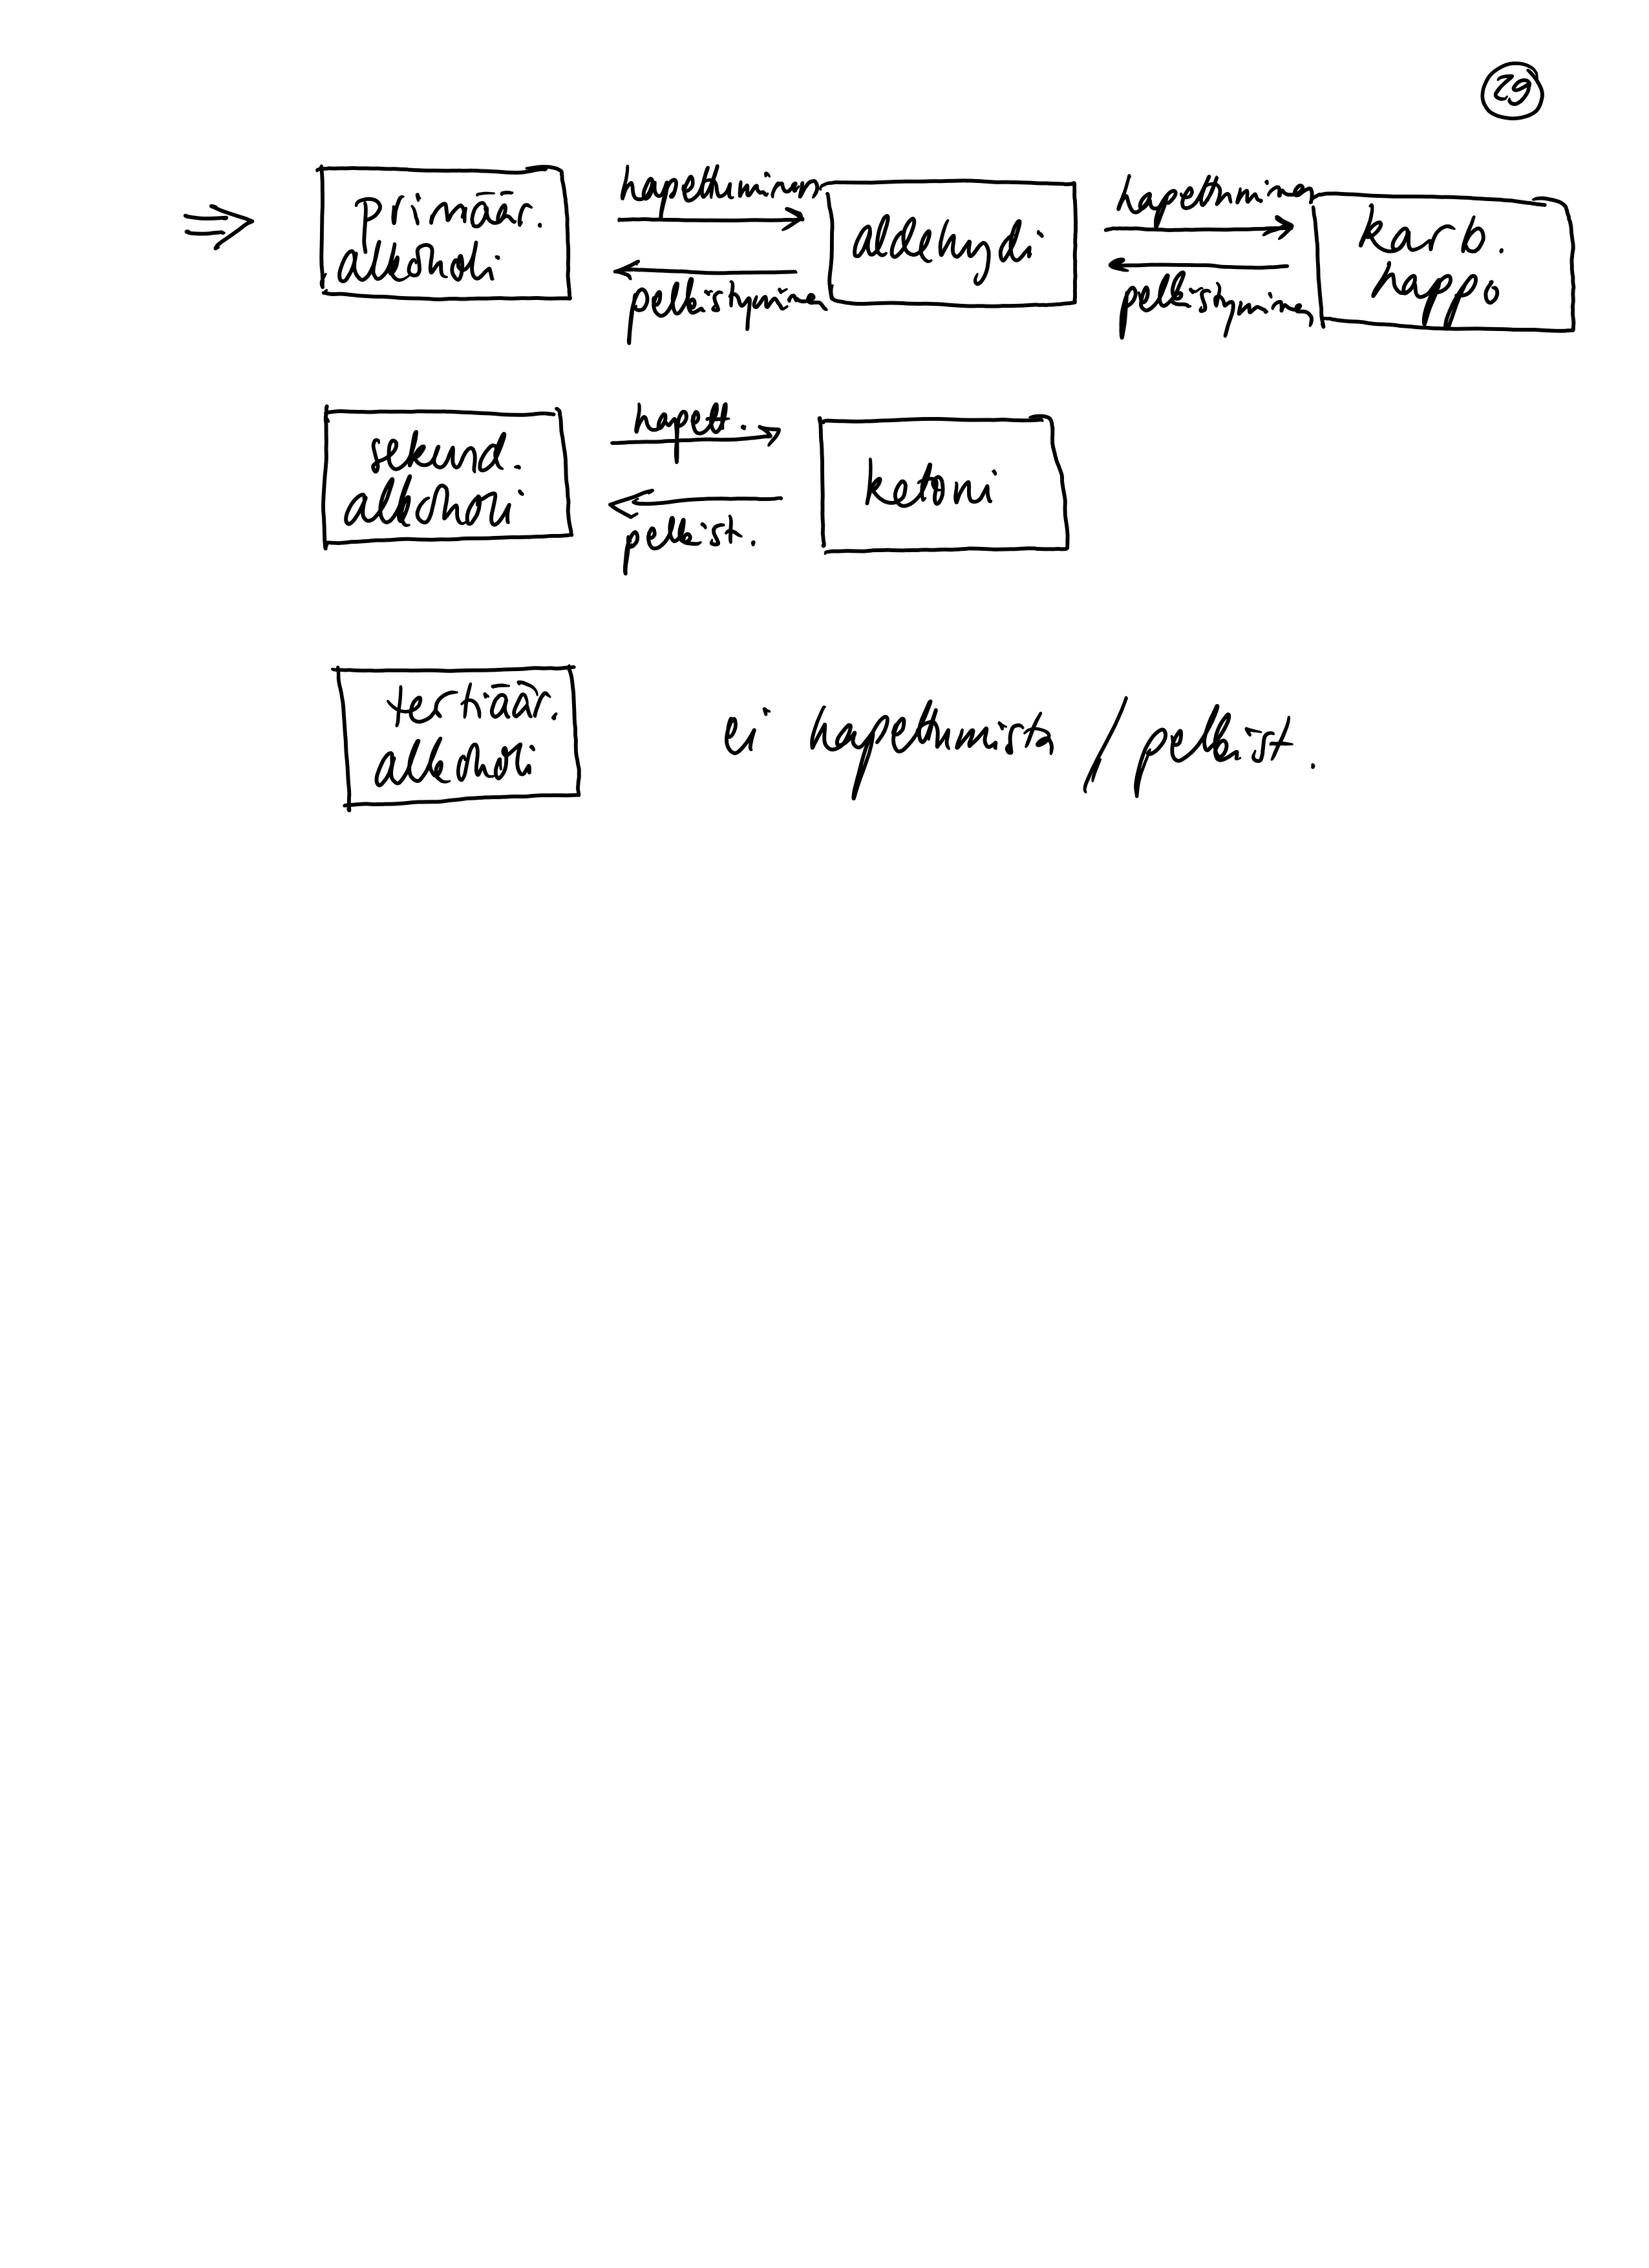 29
⇒ primäär. alkoholi
hapettuminen
pelkistyminen
aldehydi
hapettuminen
pelkistyminen
karb. happo
sekund. alkoholi
hapett.
pelkist.
ketoni
tertiäär. alkoholi
ei hapettumista / pelkist.